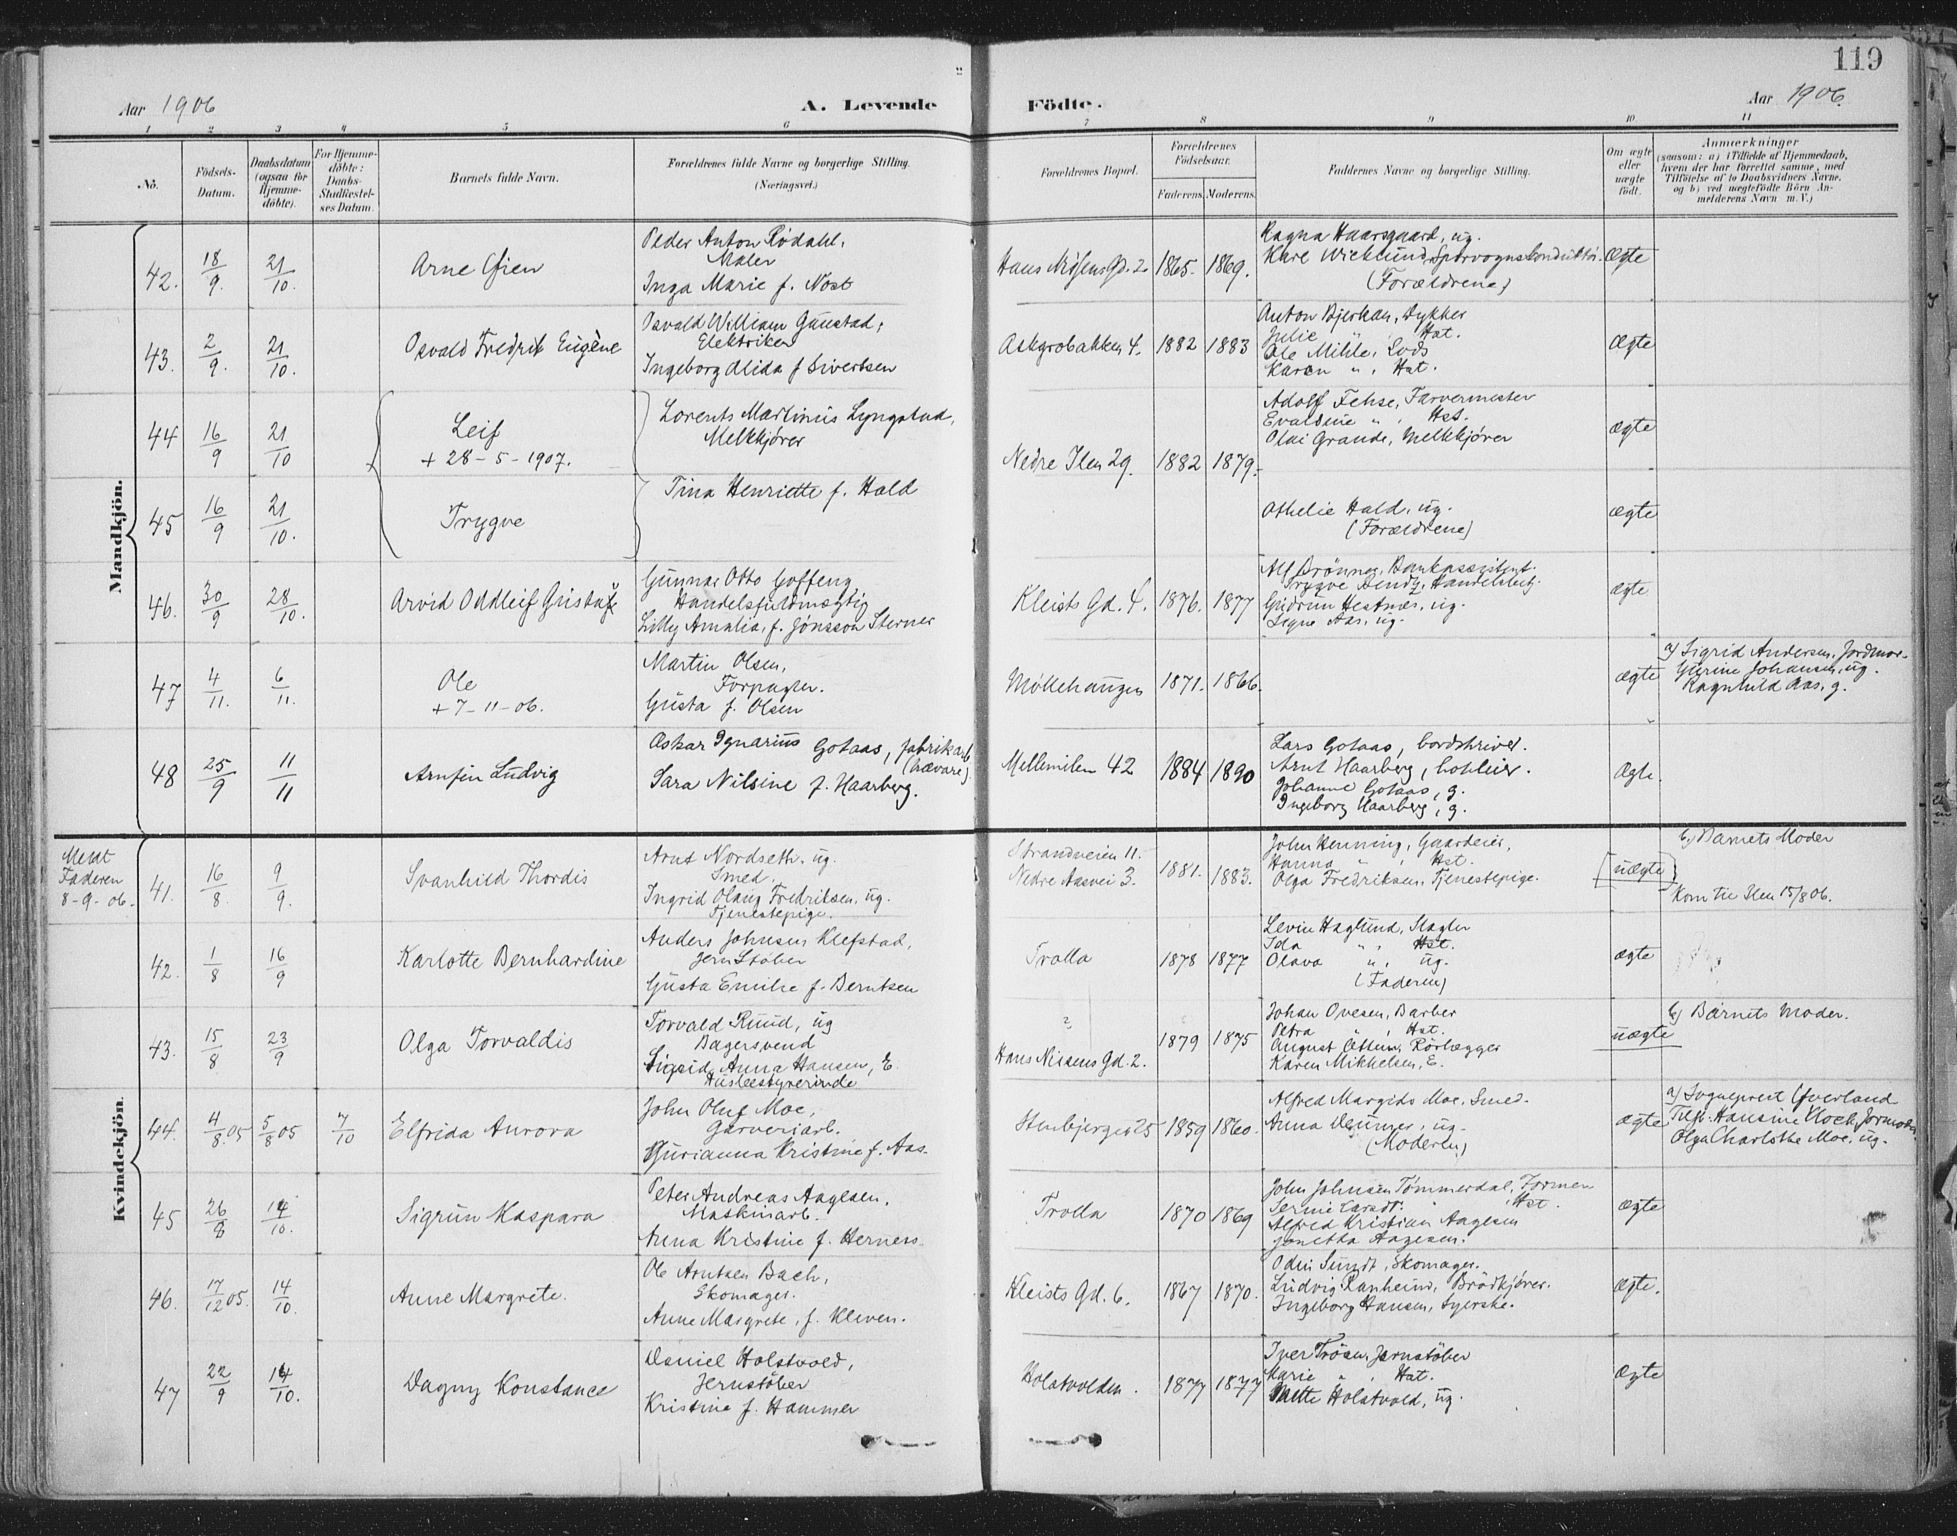 119
Aar 1906
A. Levende
Födte.
Aar 1906.
1 2 3 4 5 6 7 8 9 10 11
No.
Födsels-Datum.
Daabsdatum (ogsaa for Hjemme-döbte).
For Hjemme-döbte: Daabs-Stadfæstelses Datum.
Barnets fulde Navn.
Forældrenes fulde Navne og borgerlige Stilling. (Næringsvei.)
Forældrenes Bopæl.
Forældrenes Födselsaar.
Faderens. Moderens.
Faddernes Navne og borgerlige Stilling.
Om ægte eller uægte födt.
Anmærkninger
(saasom: a) i Tilfælde af Hjemmedaab,
hvem der har forrettet samme, med
Tilföielse af to Daabsvidners Navne,
og b) ved uægtefödte Börn An-
melderens Navn m. V.)
Mandkjön.
42. 18/9. 21/10. Arne Gien
Peder Anton Rødahl,
Maler
Inga Marie f. Nost
Hans Nissens Gd. 2. 1865. 1869.
Ragna Haarsgaard, ug.
Kare Wicklund, Sporvognskonduktør.
(Forældrene)
Ægte
43. 2/9. 21/10. Osvald Fredrik Eugène
Osvald William Gunstad,
Elektriker
Ingeborg Alida f Sivertsen
Askgrobakken 4. 1882 1883
Anton Bjerkan, Dykker
Julie " Hst.
Ole Mihle, Lods
Karen ", Hst.
Ægte
44 16/9 21/10 Leif
+ 28-5-1907.
Lorents Martinus Lyngstad,
Melkkjører
Nedre Ilen 29. 1882 1879.
Adolf Fehse, Farvermester
Evaldine ", Hst.
Olai Grande, Melkkjører
ægte
45 16/9 21/10. Trygve
Tina Henriette f. Hald
Othelie Hald, ug.
(Forældrene)
ægte
46. 30/9 28/10. Arvid Oddleif Gustaf
Gunnar Otto Goffeng
Handelsfuldmægtig
Lilly Amalia, f. Jönsson Sterner
Kleists Gd. 4. 1876. 1877
Alf Brønner, Bankassistent.
Trygve Bendz, Handelsbetj.
Gudrun Hestnæs, ug.
Signe Aas, ug.
ægte
47 4/11. 6/11. Ole
+ 7-11-06.
Martin Olsen,
Forpagter.
Gusta f. Olsen
Møllehaugen 1871. 1866.
ægte
a) Sigrid Andersen, Jordmor.
Gurine Johansen, ug.
Ragnhild Aas, g.
48 25/9 11/11 Arnfin Ludvig
Oskar Ignarius Gotaas, fabrikarb.
(hævare)
Sara Nilsine f. Haarberg.
Mellemilen 42 1884 1890
Lars Gotaas, bordskriver.
Arnt Haarberg, hohleier.
Johanne Gotaas, g.
Ingeborg Haarberg, g.
Ægte.
Kvindekjön.
Meldt
Faderen
8-9-06.
41. 16/8. 9/9. Svanhild Thordis
Arnt Nordseth, ug.
Smed.
Ingrid Olaug Fredriksen, ug.
Tjenestepige.
Strandveien 11.
Nedre Aasvei 3.
1881. 1883.
John Henning, Gaardeier,
Hanna ", Hst.
Olga Fredriksen, Tjenestepige.
uægte
b) Barnets Moder
Kom til Ilen 15/8 06.
42. 1/8 16/9 Karlotte Bernhardine
Anders Johnsen Klefstad,
Jernstøber
Gusta Emilie f. Berntsen
Trolla 1878 1877
Levin Haglund, Slagter
Ida ", Hst.
Olava ", ug.
(Faderen)
ægte
43. 15/8 23/9 Olga Torvaldis
Torvald Ruud, ug
Bagersvend
Sigrid Anna Hansen, E.
Husbestyrerinde
?
Hans Nissens Gd. 2.
1879 1875
Johan Ovesen, Barber
Petra ", Hst.
August Ottum, Rørlægger
Karen Mikkelsen, E.
uægte
b) Barnets Moder.
44. 4/8 05 5/8 05 7/10 Elfrida Aurora
John Oluf Moe,
Garveriarb.
Gurianna Kristine f. Aas.
Stenbjerget 25 1859 1860.
Alfred Margido Moe, Smed.
Anna Degnnes, ug.
(Moderen)
ægte
a) Sogneprest Øverland
Tilst. Hansine Klock, Jormoder
Olga Charlotte Moe, ug.
45 26/8 14/10. Sigrun Kaspara
Peter Andreas Aagesen,
Maskinarb.
Anna Kristine f. Herness.
Trolla 1870 1869
John Johnsen Tømmerdal, Formen
Serine Larsdt. , Hst.
Alfred Kristian Aagesen
Janetha Aagesen.
ægte
46. 17/12 05. 14/10. Anne Margrete.
Ole Arntsen Bach,
Skomager.
Anne Margrete, f. Kleven.
Kleists Gd. 6. 1867 1870.
Odin Sundt, Skomager.
Ludvig Ranheim, Brødkjører.
Ingeborg Hansen, Syerske.
ægte.
47 22/9 14/10. Dagny Konstance
Daniel Holstvold,
Jernstøber
Kristine f. Hammer
Holstvolden. 1877 1877
Iver Trøan, Jernstøber
Marie ", Hst.
Mette Holstvold, ug.
ægte